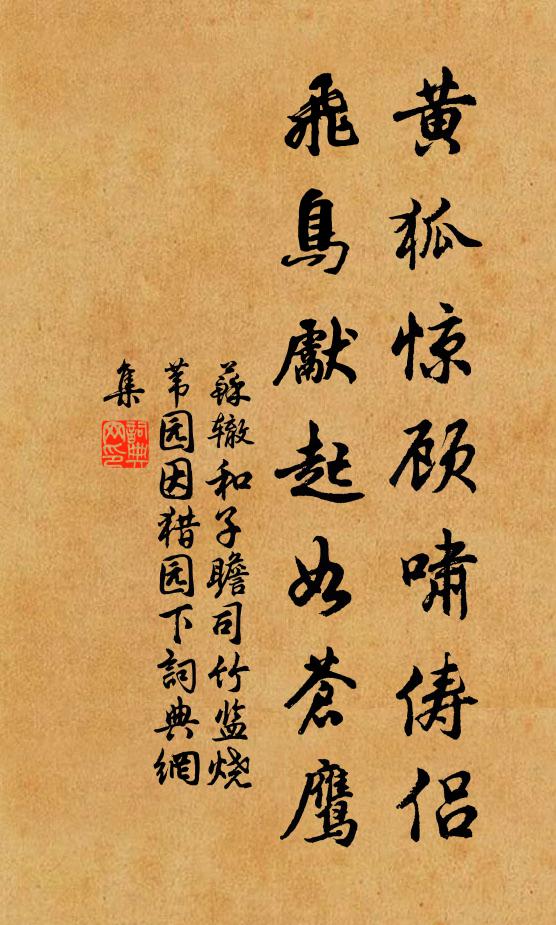 黄狐惊顾啸俦侣
飛鳥獻起如蒼鷹
蘇辙和子瞻司竹监烧
苇园因猎园下詞典網
集
詞典網印